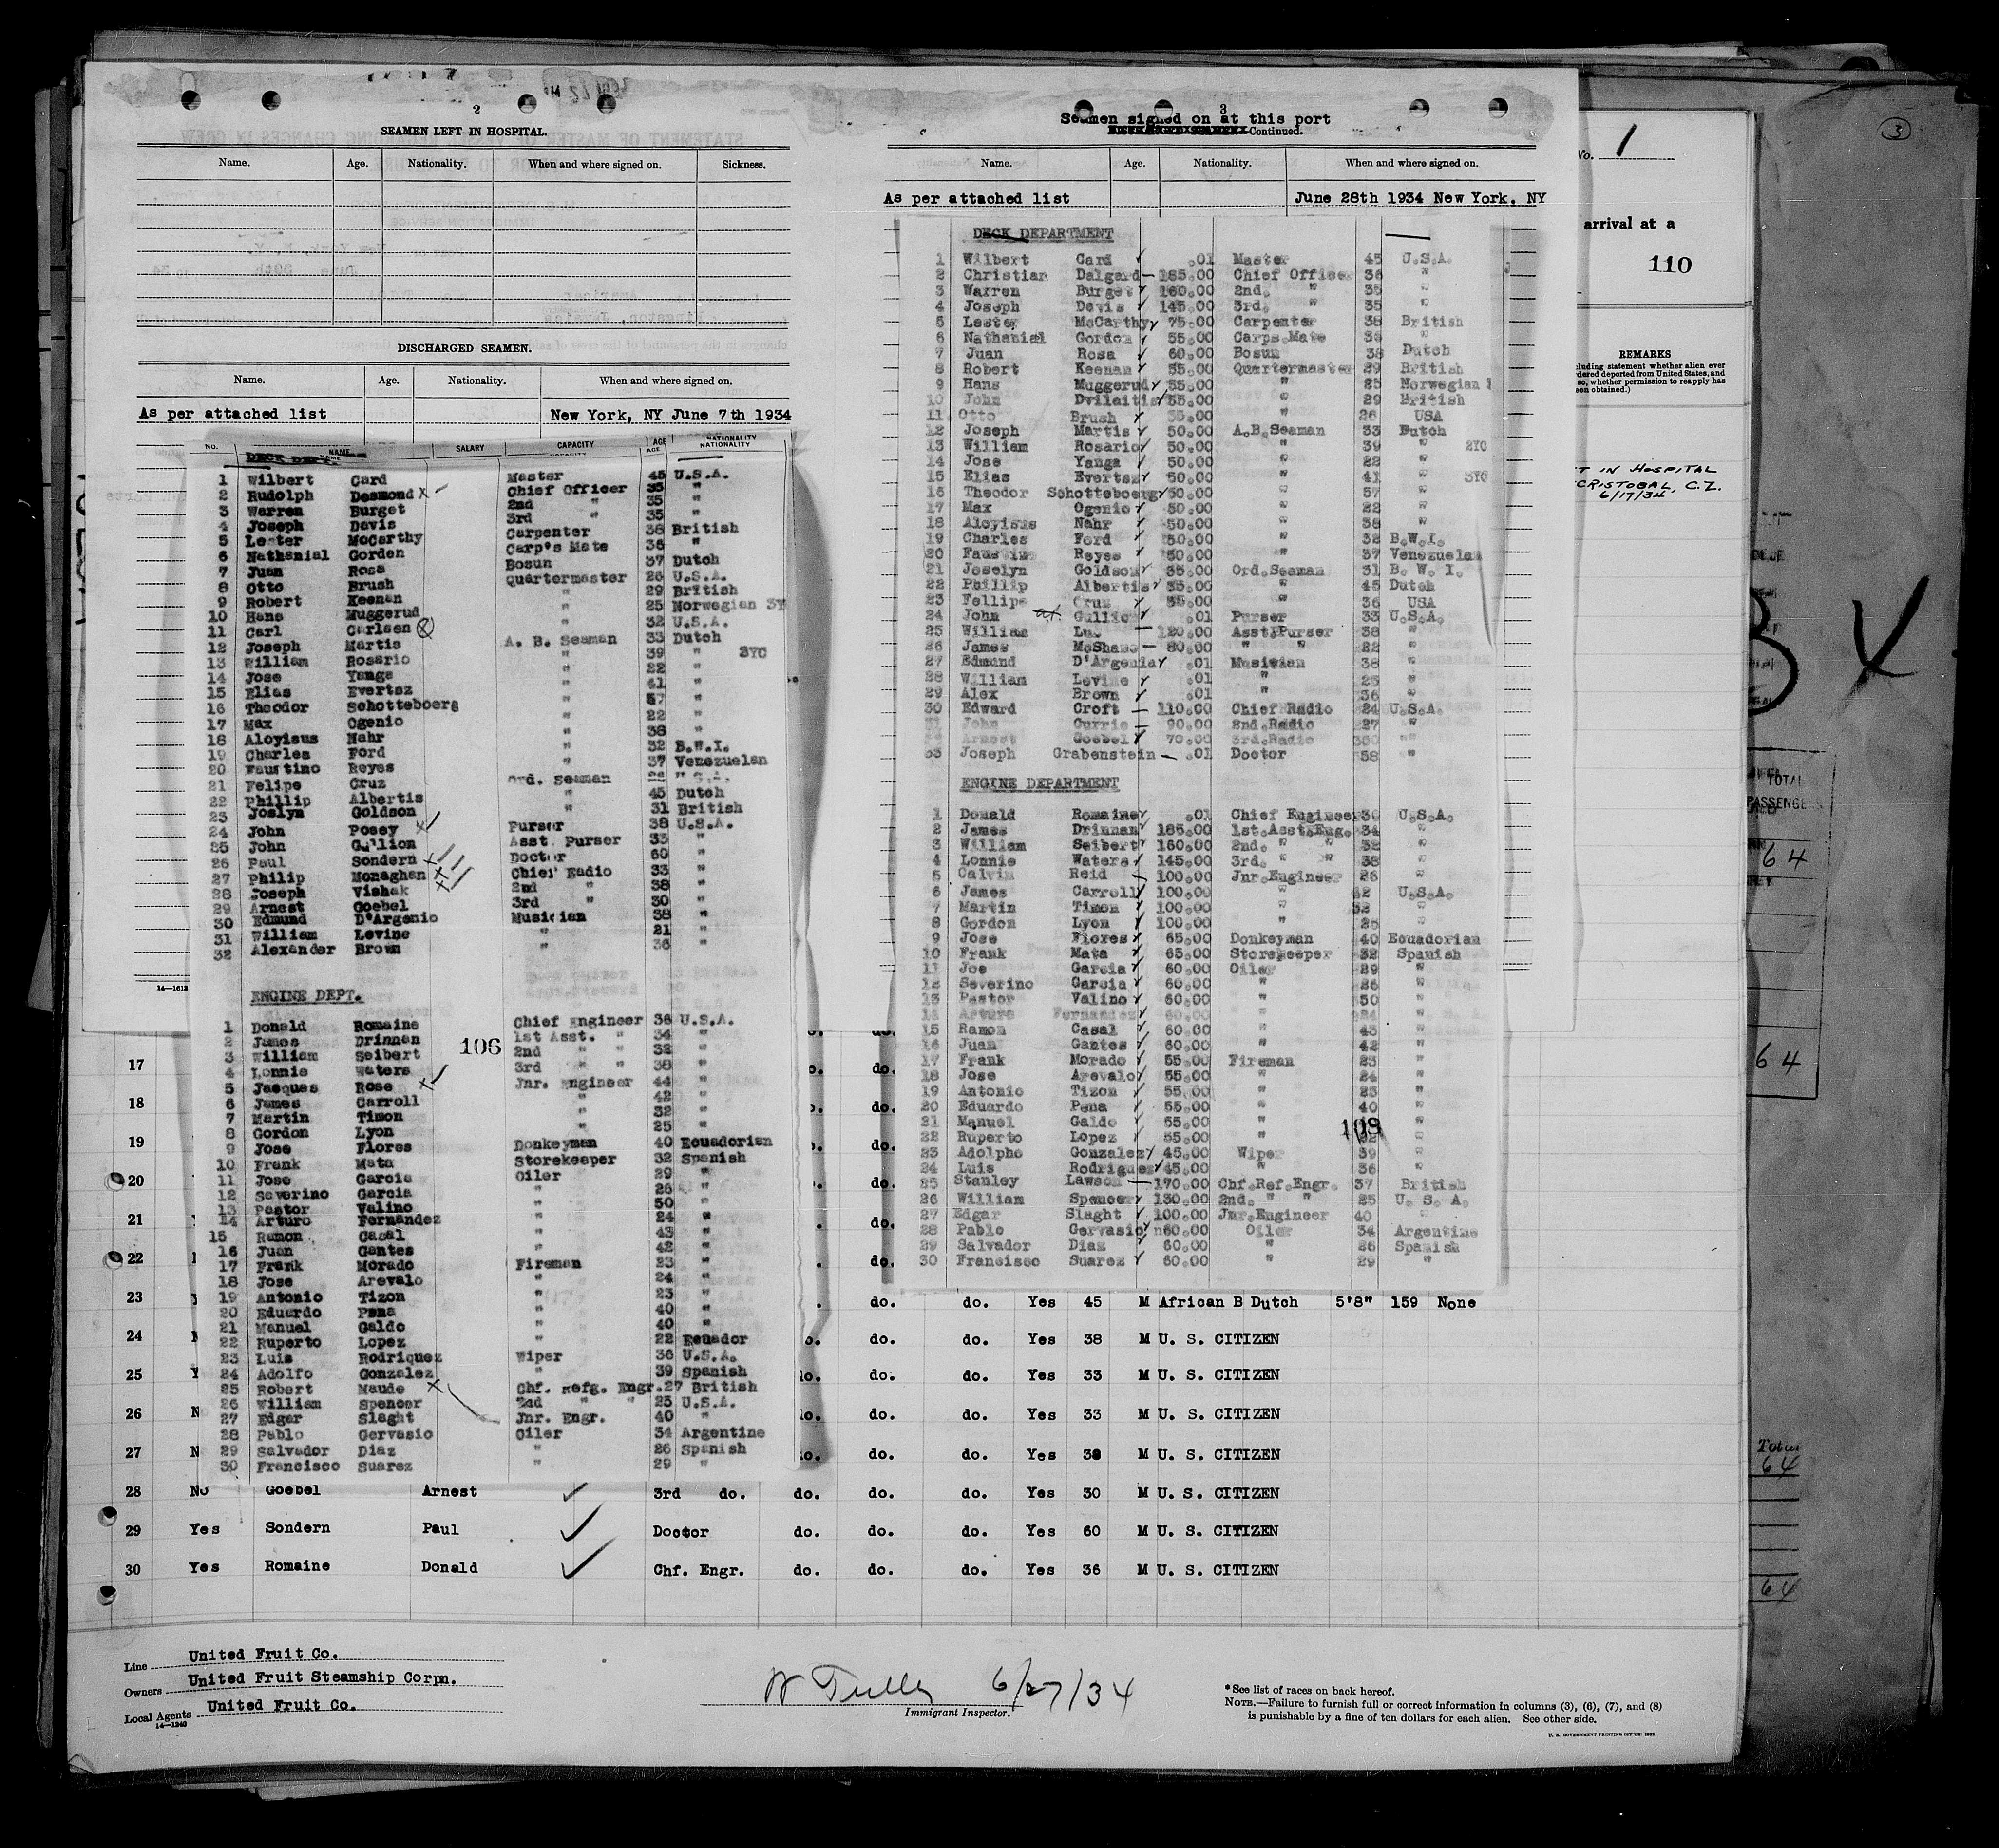 2
SEAMEN LEFT IN HOSPITAL.
Name. Age. Nationality. When and where signed on. Sickness.
DISCHARGED SEAMEN.
Name. Age. Nationality. When and where signed on.
As per attached list New York, NY June 7th 1934
NO. NAME SALARY CAPACITY AGE NATIONALITY
DECK DEPT.
1 Wilbert Card Master 45 U.S.A.
2 Rudolph Desmond x Chief Officer 35 "
3 Warren Burget 2nd " 35 "
4 Joseph Davis 3rd " 35 "
5 Lester McCarthy Carpenter 38 British
6 Nathanial Gorden Carp's Mate 36 "
7 Juan Rosa Bosun 37 Dutch
8 Otto Brush Quartermaster 26 U.S.A.
9 Robert Keenan " 29 British
10 Hans Muggerud " 25 Norwegian
11 Carl Carlsen " 32 U.S.A.
12 Joseph Martis A. B. Seaman 33 Dutch
13 William Rosario " 39 " 3YC
14 Jose Yanga " 22 "
15 Elias Evertsz " 41 "
16 Theodor Schotteboerg " 57 "
17 Max Ogenio " 22 "
18 Aloyisus Nahr " 38 "
19 Charles Ford " 32 B.W.I.
20 Faustino Reyes " 37 Venezuelan
21 Felipe Cruz Ord. Seaman
22 Phillip Albertis " 45 Dutch
23 Joslyn Goldson " 31 British
24 John Posey x Purser 38 U.S.A.
25 John Gullion Asst. Purser 33 "
26 Paul Sondern x Doctor 60 "
27 Philip Monaghan x Chief Radio 33 "
28 Joseph Vishak x 2nd " 38 "
29 Arnest Goebel 3rd " 30 "
30 Edmund D'Argenio Musician 38 "
31 William Levine " 21 "
32 Alexander Brown " 36 "
ENGINE DEPT.
1 Donald Romaine Chief Engineer 36 U.S.A.
2 James Drinnan 1st Asst. " 34 "
3 William Seibert 106 2nd " " 32 "
4 Lonnie Waters 3rd " " 38 "
5 Jacques Rose x Jnr. Engineer 44 "
6 James Carroll " 42 "
7 Martin Timon " 32 "
8 Gordon Lyon " 25 "
9 Jose Flores Donkeyman 40 Ecuadorian
10 Frank Mata Storekeeper 32 Spanish
11 Jose Garcia Oiler 29 "
12 Severino Garcia " 26 "
13 Pastor Valino " 50 "
14 Arturo Fernandez " 24 "
15 Ramon Casal " 43 "
16 Juan Gantes " 42 "
17 Frank Morado Fireman 23 "
18 Jose Arevalo " 24 "
19 Antonio Tizon " 23 "
20 Eduardo Pena " 40 "
21 Manuel Galdo " 40 "
22 Ruperto Lopez " 22 Ecuador
23 Luis Rodriquez Wiper 36 U.S.A.
24 Adolfo Gonzalez " 39 Spanish
25 Robert Maude x Chf. Refg. Engr. 27 British
26 William Spencer 2nd " " 25 U.S.A.
27 Edgar Slaght Jnr. Engr. 40 "
28 Pablo Gervasio Oiler 34 Argentine
29 Salvador Diaz " 26 Spanish
30 Francisco Suarez " 29 "
14—1613
3
Seamen signed on at this port
Continued.
Name. Age. Nationality. When and where signed on.
As per attached list June 28th 1934 New York, NY
DECK DEPARTMENT
1 Wilbert Card .01 Master 45 U.S.A.
2 Christian Dalgard 185.00 Chief Officer 36 "
3 Warren Burget 160.00 2nd. " 35 "
4 Joseph Davis 145.00 3rd. " 35 "
5 Lester McCarthy 75.00 Carpenter 38 British
6 Nathanial Gordon 55.00 Carps.Mate 36 "
7 Juan Rosa 60.00 Bosun 38 Dutch
8 Robert Keenan 55.00 Quartermaster 29 British
9 Hans Muggerud 55.00 " 25 Norwegian
10 John Dvilaitis 55.00 " 29 British
11 Otto Brush 55.00 " 26 USA
12 Joseph Martis 50.00 A.B.Seaman 33 Dutch
13 William Rosario 50.00 " 39 " 2YC
14 Jose Yanga 50.00 " 22 "
15 Elias Evertsz 50.00 " 41 " 3YC
16 Theodor Schotteboerg 50.00 " 57 "
17 Max Ogenio 50.00 " 22 "
18 Aloyisus Nahr 50.00 " 38 "
19 Charles Ford 50.00 " 32 B.W.I.
20 Faustino Reyes 50.00 " 37 Venezuelan
21 Joselyn Goldson 35.00 Ord.Seaman 31 B. W. I.
22 Phillip Albertis 35.00 " 45 Dutch
23 Fellipe Cruz 35.00 " 36 USA
24 John Gullion .01 Purser 33 U.S.A.
25 William 120.00 Asst.Purser 38 "
26 James McShane 80.00 " " 22 "
27 Edmund D'Argenia .01 Musician 38 "
28 William Levine .01 " 25 "
29 Alex Brown .01 " 36 "
30 Edward Croft 110.00 Chief Radio 24 U.S.A.
31 John Currie 90.00 2nd.Radio 27 "
Arnest Goebel 70.00 3rd.Radio 30 "
33 Joseph Grabenstein .01 Doctor 58 "
ENGINE DEPARTMENT
1 Donald Romaine .01 Chief Engineer 36 U.S.A.
2 James Drinnan 185.00 1st.Asst.Eng. 34 "
3 William Seibert 160.00 2nd. " " 32 "
4 Lonnie Waters 145.00 3rd. " " 38 "
5 Calvin Reid 100.00 Jnr.Engineer 26 "
6 James Carroll 100.00 " 42 U.S.A.
7 Martin Timon 100.00 " 32 "
8 Gordon Lyon 100.00 " 25 "
9 Jose Flores 65.00 Donkeyman 40 Ecuadorian
10 Frank Mata 65.00 Storekeeper 32 Spanish
11 Joe Garcia 60.00 Oiler 29 "
12 Severino Garcia 60.00 " 26 "
13 Pastor Valino 60.00 " 50 "
14 Arturo Fernandez 60.00 " 24 "
15 Ramon Casal 60.00 " 43 "
16 Juan Gantes 60.00 " 42 "
17 Frank Morado 55.00 Fireman 23 "
18 Jose Arevalo 55.00 " 24 "
19 Antonio Tizon 55.00 " 23 "
20 Eduardo Pena 55.00 " 40 "
21 Manuel Galdo 55.00 " "
22 Ruperto Lopez 55.00 " 22 "
23 Adolpho Gonzalez 45.00 Wiper 39 "
24 Luis Rodriguez 45.00 " 36 "
25 Stanley Lawson 170.00 Chf.Ref.Engr. 37 British
26 William Spencer 130.00 2nd. " " 25 U. S. A.
27 Edgar Slaght 100.00 Jnr.Engineer 40 "
28 Pablo Gervasio 60.00 Oiler 34 Argentine
29 Salvador Diaz 60.00 " 26 Spanish
30 Francisco Suarez 60.00 " 29 "
No. 1
3
arrival at a
110
REMARKS
LEFT IN HOSPITAL
CRISTOBAL, C.Z.
6/17/34
TOTAL
PASSENGERS
64
64
Total
64
64
17 do.
18 do.
19 do.
20 do.
21 do.
22 do.
23 do. do. Yes 45 M African B Dutch 5'8" 159 None
24 Yes 38 M U. S. CITIZEN
25 do. do. Yes 33 M U. S. CITIZEN
26 do. do. Yes 33 M U. S. CITIZEN
27 do. do. Yes 38 M U. S. CITIZEN
28 No Goebel Arnest 3rd do. do. do. do. Yes 30 M U. S. CITIZEN
29 Yes Sondern Paul Doctor do. do. do. Yes 60 M U. S. CITIZEN
30 Yes Romaine Donald Chf. Engr. do. do. do. Yes 36 M U. S. CITIZEN
Line United Fruit Co.
Owners United Fruit Steamship Corpn.
Local Agents United Fruit Co.
14—1240
6/27/34
Immigrant Inspector.
*See list of races on back hereof.
NOTE.—Failure to furnish full or correct information in columns (3), (6), (7), and (8)
is punishable by a fine of ten dollars for each alien. See other side.